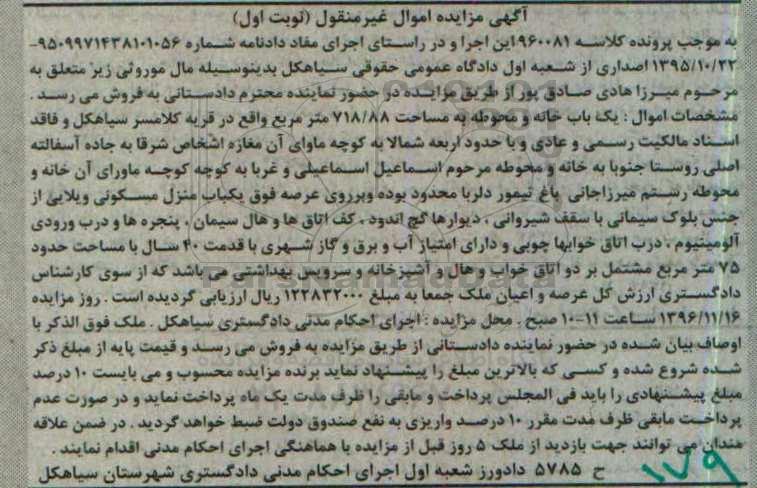 آگهی مزایده اموال غیرمنقول (نوبت اول)
به موجب پرونده کلاسه ۹۶۰۰۸۱ این اجرا و در راستای اجرای مفاد دادنامه شماره ۹۵۰۹۹۷۱۴۳۸۱۰۱۰۵۶-
۱۳۹۵/۱۰/۲۲ اصداری از شعبه اول دادگاه عمومی حقوقی سیاهکل بدینوسیله مال موروثی زیر متعلق به
مرحوم میرزا هادی صادق پور از طریق مزایده در حضور نماینده محترم دادستانی به فروش می رسد .
مشخصات اموال : یک باب خانه و محوطه به مساحت ۷۱۸/۸۸ متر مربع واقع در قریه کلامسر سیاهکل و فاقد
اسناد مالکیت رسمی و عادی و با حدود اربعه شمالا به کوچه ماوای آن مغازه اشخاص شرقا به جاده آسفالته
اصلی روستا جنوبا به خانه و محوطه مرحوم اسماعیل اسماعیلی و غربا به کوچه کوچه ماورای آن خانه و
محوطه رستم میرزاجانی باغ تیمور دلربا محدود بوده وبرروی عرصه فوق یکباب منزل مسکونی ویلایی از
جنس بلوک سیمانی با سقف شیروانی ، دیوارها گچ اندود ، کف اتاق ها و هال سیمان ، پنجره ها و درب ورودی
آلومینیوم ، درب اتاق خوابها چوبی و دارای امتیاز آب و برق و گاز شهری با قدمت ۴۰ سال با مساحت حدود
۷۵ متر مربع مشتمل بر دو اتاق خواب و هال و آشپزخانه و سرویس بهداشتی می باشد که از سوی کارشناس
دادگستری ارزش کل عرصه و اعیان ملک جمعا به مبلغ ۱۲۲۸۳۲۰۰۰ ریال ارزیابی گردیده است . روز مزایده
۱۳۹۶/۱۱/۱۶ ساعت ۱۱-۱۰ صبح . محل مزایده : اجرای احکام مدنی دادگستری سیاهکل . ملک فوق الذکر با
اوصاف بیان شده در حضور نماینده دادستانی از طریق مزایده به فروش می رسد و قیمت پایه از مبلغ ذکر
شده شروع شده و کسی که بالاترین مبلغ را پیشنهاد نماید برنده مزایده محسوب و می بایست ۱۰ درصد
مبلغ پیشنهادی را باید فی المجلس پرداخت و مابقی را ظرف مدت یک ماه پرداخت نماید و در صورت عدم
پرداخت مابقی ظرف مدت مقرر ۱۰ درصد واریزی به نفع صندوق دولت ضبط خواهد گردید . در ضمن علاقه
مندان می توانند جهت بازدید از ملک ۵ روز قبل از مزایده با هماهنگی اجرای احکام مدنی اقدام نمایند .
ح ۵۷۸۵ دادورز شعبه اول اجرای احکام مدنی دادگستری شهرستان سیاهکل
۱۷۹
ParsNamadData